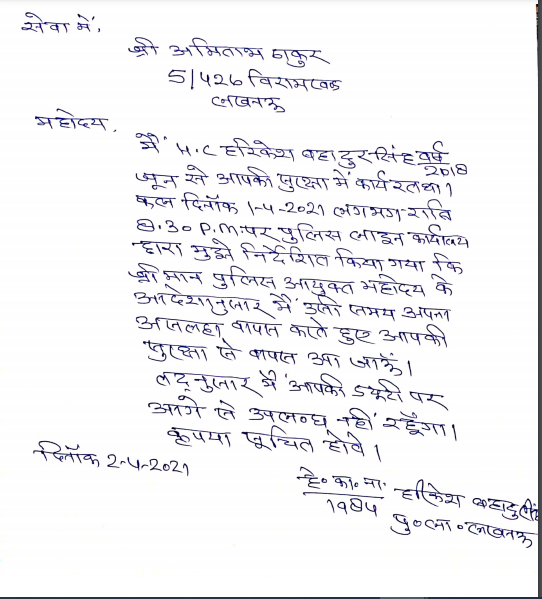 सेवा में,
श्री अमिताभ ठाकुर
5/426 विरामखण्ड
लखनऊ
महोदय,
मैं H.C हरिकेश बहादुर सिंह वर्ष
2018
जून से आपकी सुरक्षा में कार्यरत था।
कल दिनाँक 1-4-2021 लगभग रात्रि
8.30 P.M. पर पुलिस लाइन कार्यालय
द्वारा मुझे निर्देशित किया गया कि
श्रीमान पुलिस आयुक्त महोदय के
आदेशानुसार मैं उसी समय अपना
असलहा वापस करते हुए आपकी
सुरक्षा से वापस आ जाऊँ।
तद्नुसार मैं आपकी ड्यूटी पर
आगे से उपलब्ध नहीं रहूँगा।
कृपया सूचित होवें।
दिनाँक 2-4-2021
हे० का० ना० हरिकेश बहादुर सिंह
1984
पु० ला० लखनऊ